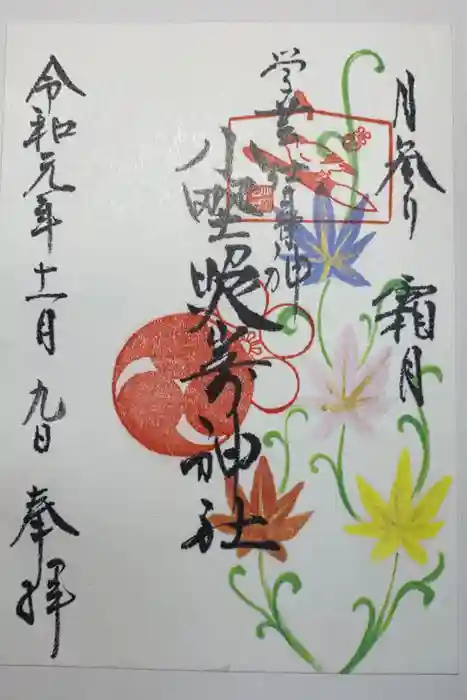 月参り
霜月
学芸の祖神
小野照崎神社
令和元年十一月九日
奉拝